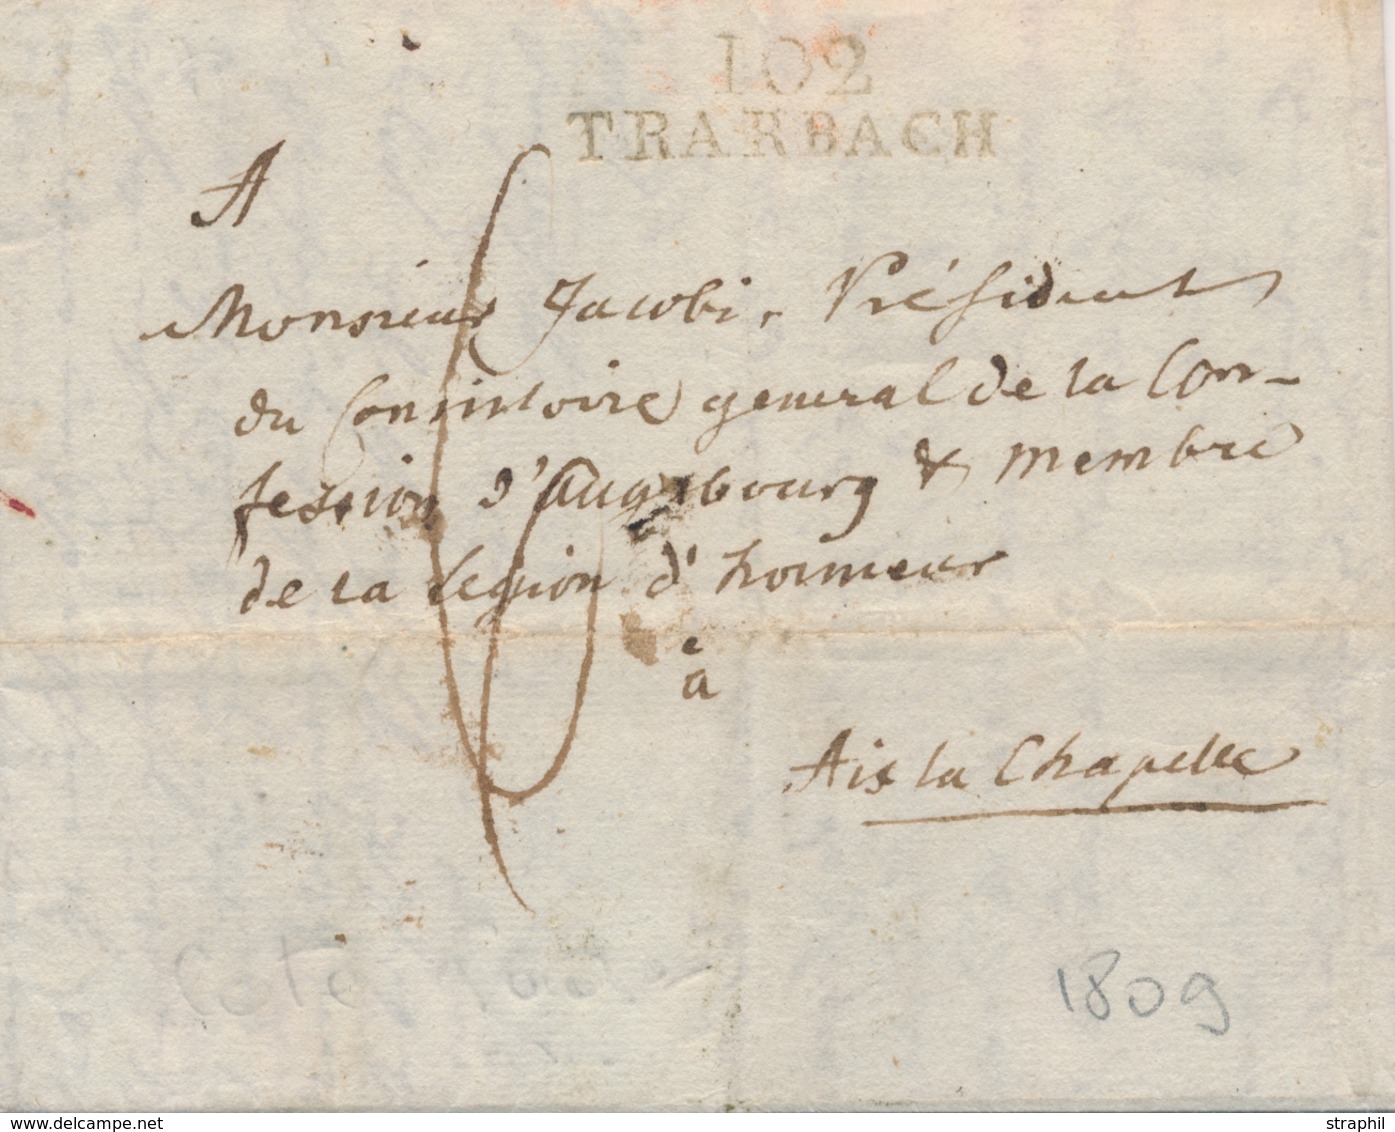 102
TRARBACH
A
Monsieur Jacobi, Président
du Consistoire general de la Con-
fession d'Augsbourg & membre
de la legion d'honneur
6
à
Aix la Chapelle
1809
www.delcampe.net
straphil